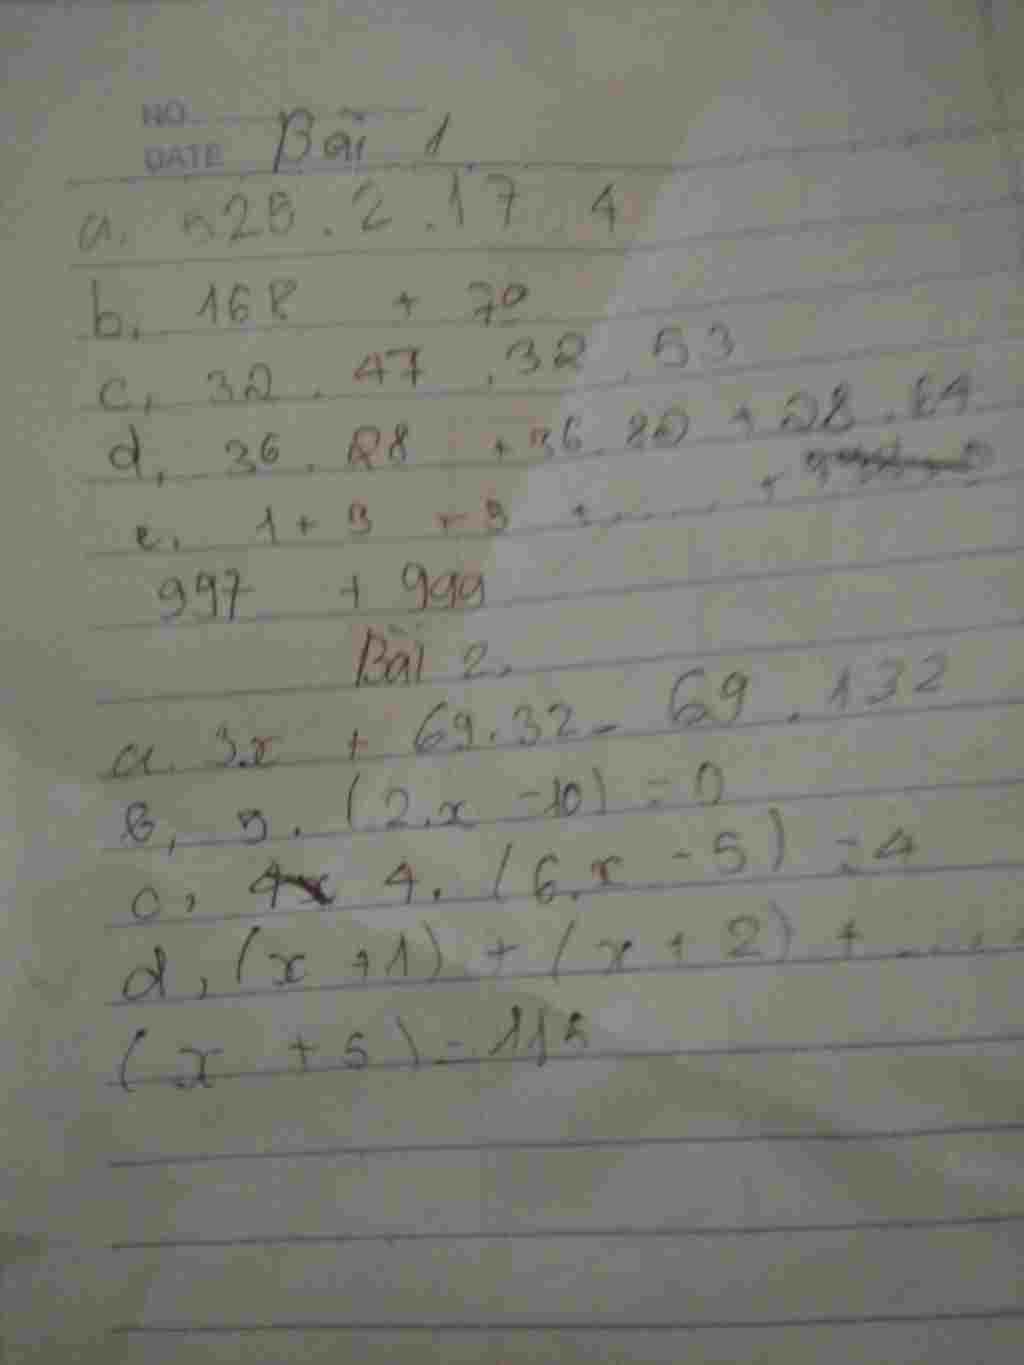 NO.
DATE Bài 1
a. 525 . 2 . 17 . 4
b, 168 + 70
c, 32 . 47 . 32 . 53
d, 36 . 28 + 36 . 82 + 28 . 64
e, 1 + 3 + 5 + ...... +
997 + 999
Bài 2.
a. 3x + 69.32 - 69 . 132
b, 5 . (2.x - 10) = 0
c, 4. (6.x - 5) = 4
d, (x + 1) + (x + 2) + .... +
(x + 5) = 115